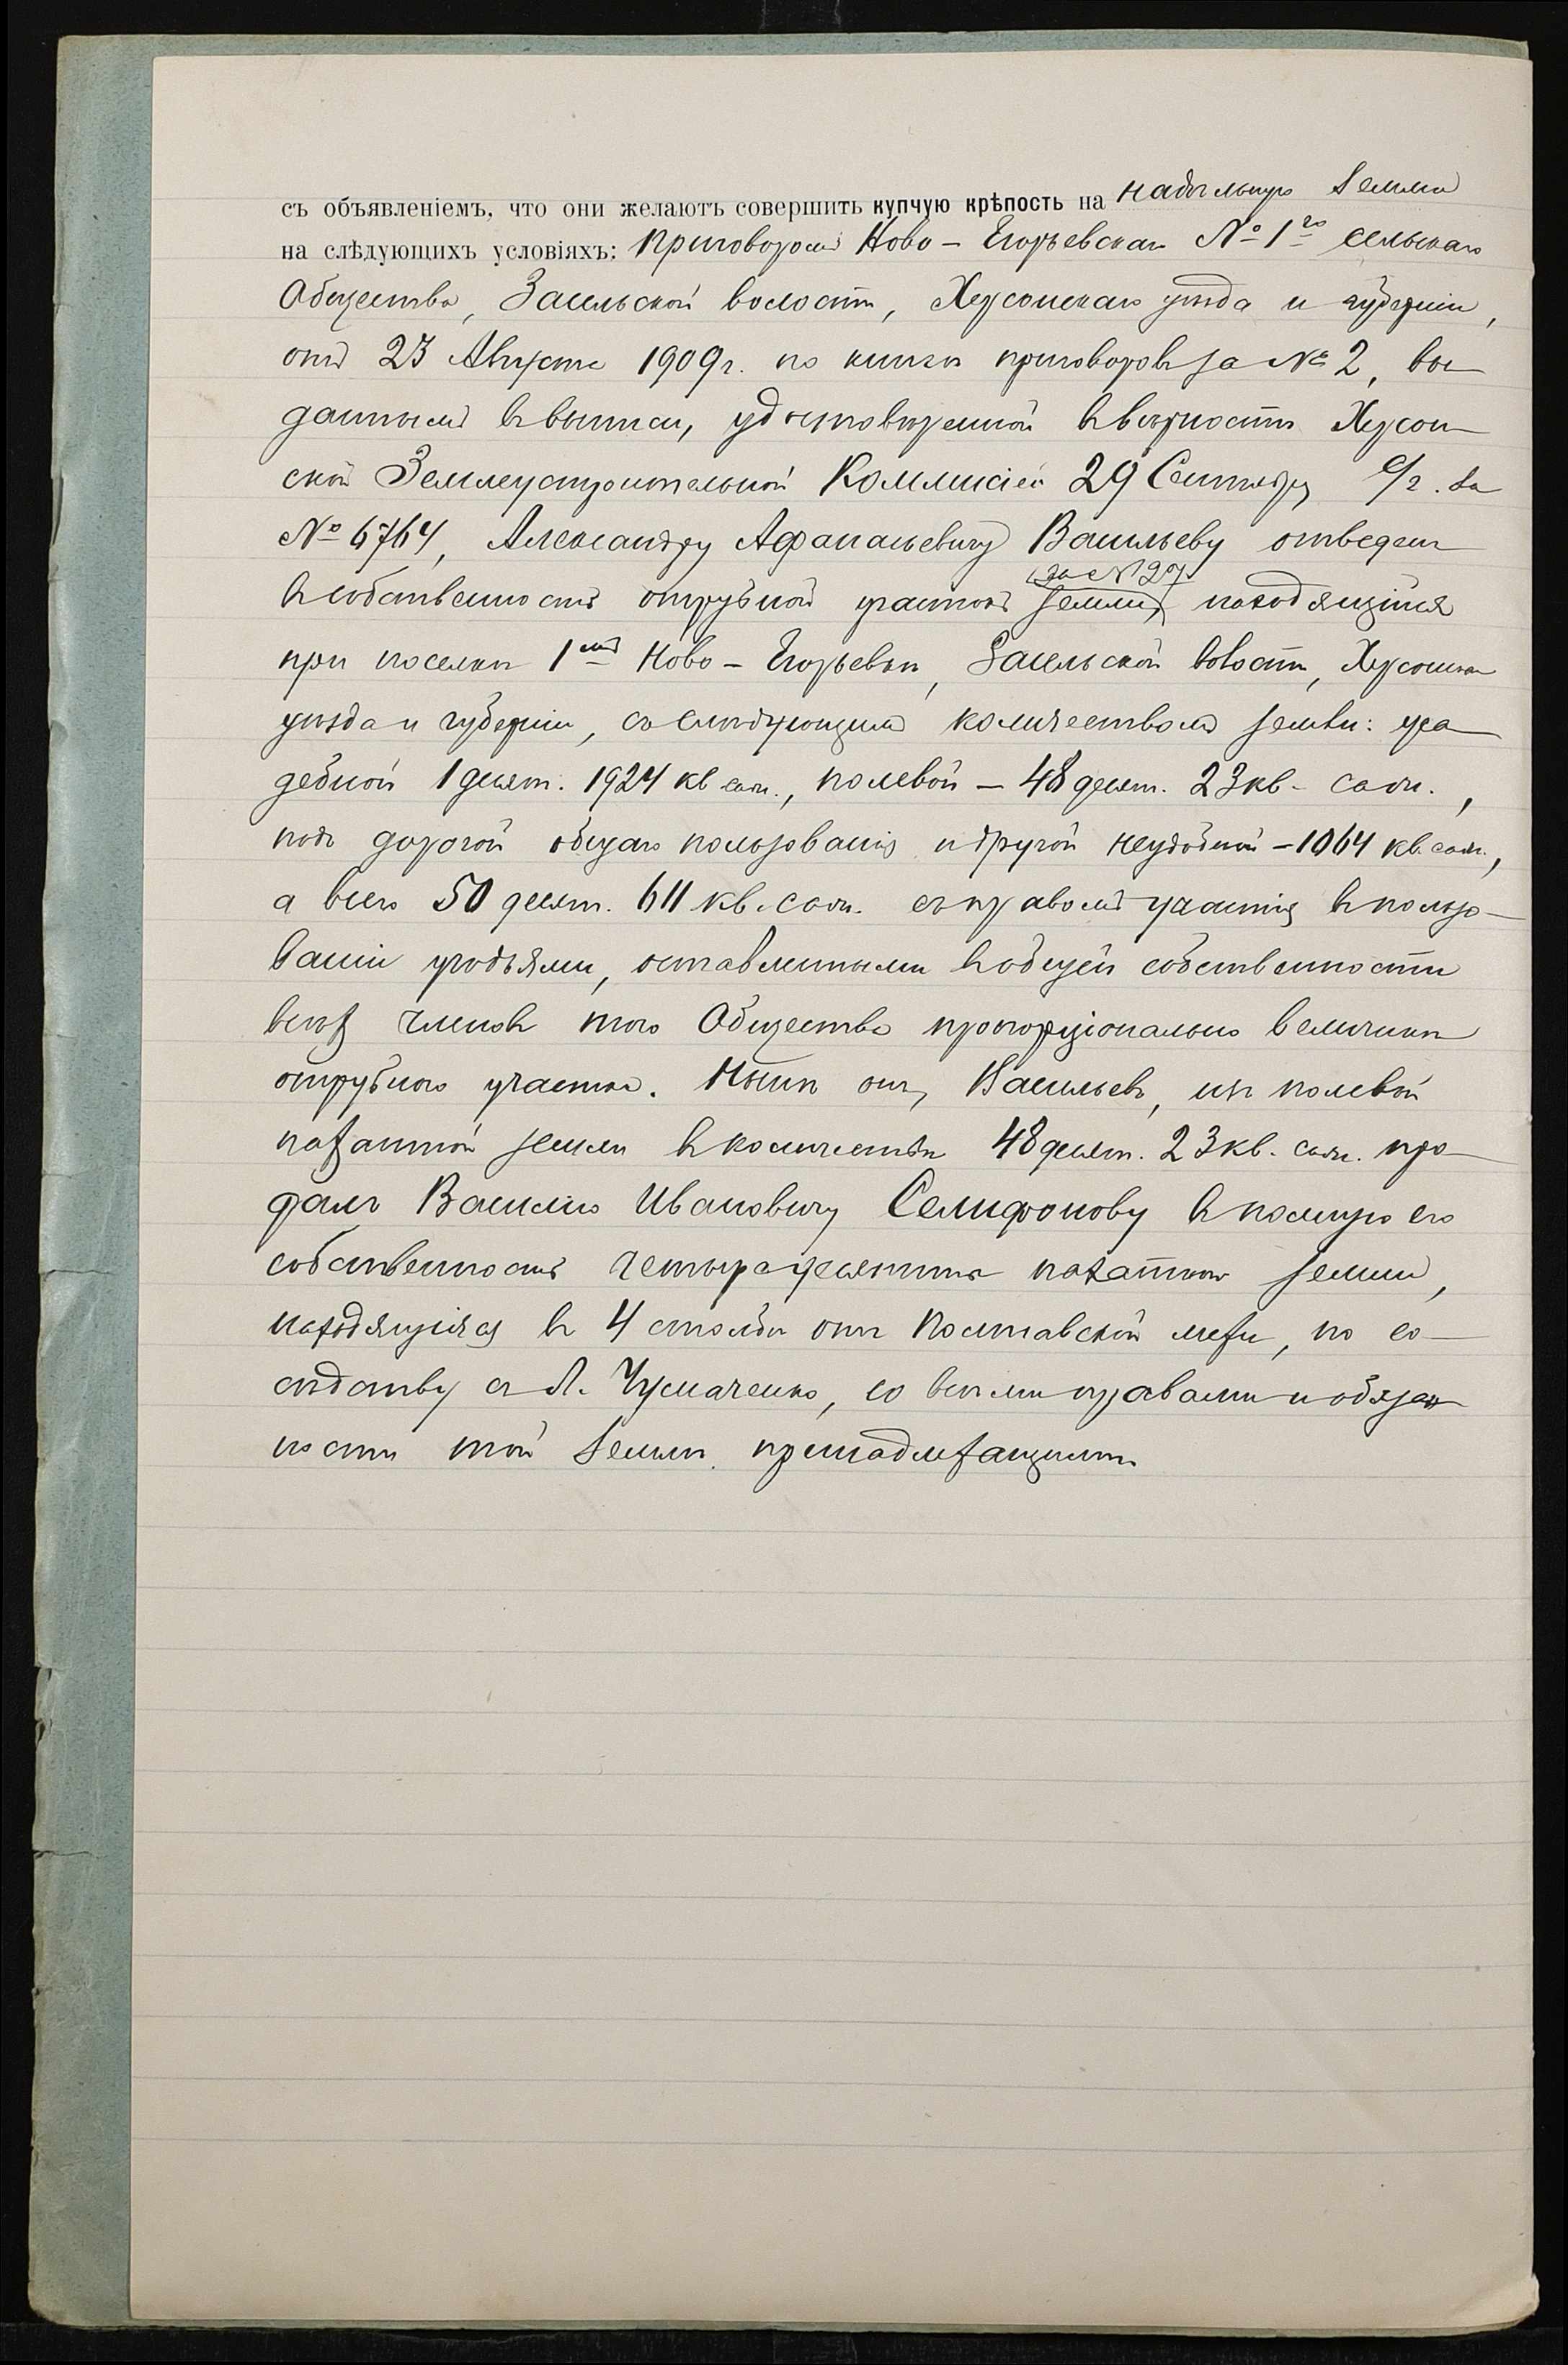 съ объявленіемъ, что они желаютъ совершить купчую крѣпость на надѣльную землю
на слѣдующихъ условіяхъ: Приговоромъ Ново-Егорьевскаго № 1го сельскаго
Общества, Засельской волости, Херсонскаго уѣзда и губерніи,
отъ 23 Августа 1909 г. по книгѣ приговоровъ за № 2, вы-
даннымъ въ выписи, удостовѣренной въ вѣрности Херсон-
ской Землеустроительной Коммисіей 29 Сентября с/г. за
№ 6764, Александру Афанасьевичу Васильеву отведенъ
за № 27
въ собственность отрубной участокъ земли, находящійся
при поселкѣ 1мъ Ново-Егорьевкѣ, Засельской волости, Херсонска
уѣзда и губерніи, съ слѣдующимъ количествомъ земли: уса-
дебной 1 десят. 1924 кв. саж., полевой – 48 десят. 23 кв. саж.,
подъ дорогой общаго пользованія и другой неудобной – 1064 кв. саж.,
а всего 50 десят. 611 кв. саж. съ правомъ участія въ пользо-
ваніи угодьями, оставленными въ общей собственности
всѣхъ членовъ того Общества пропорціонально величинѣ
отрубного участка. Нынѣ онъ, Васильевъ, изъ полевой
пахатной земли въ количествѣ 48 десят. 23 кв. саж. про-
далъ Василію Ивановичу Селифонову въ полную его
собственность четыре десятины пахатной земли,
находящіяся въ 4 столбѣ отъ Полтавской межи, по со-
сѣдству съ Л. Чумаченко, со всѣми правами и обязан
ности той землѣ принадлежащими